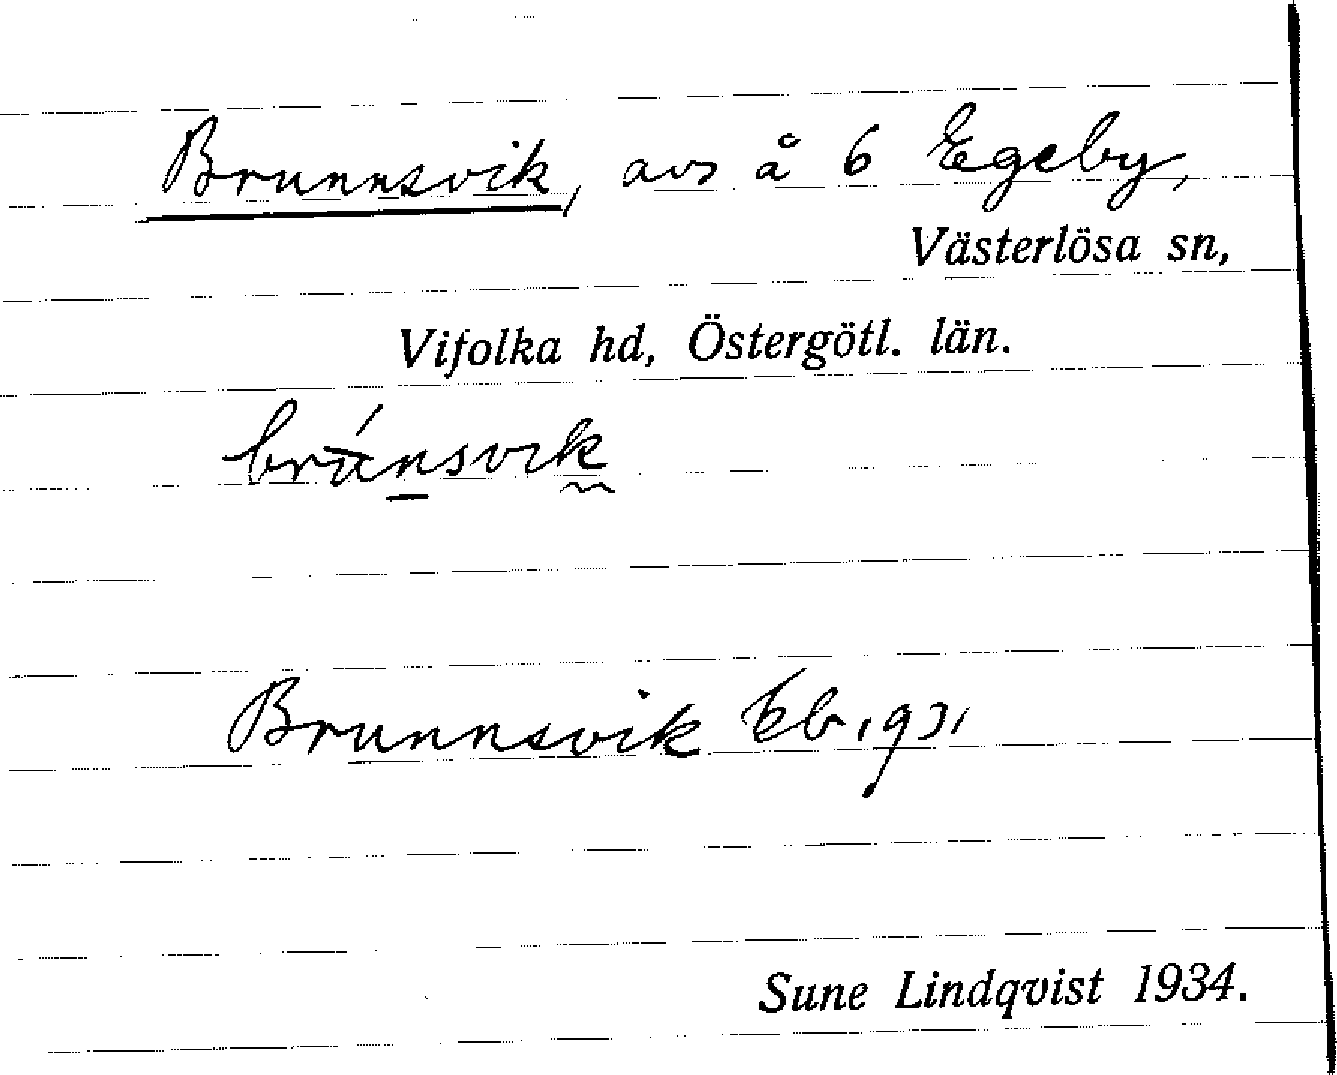 Brunnsvik, avs å 6 Egeby,
Västerlösa sn,
Vifolka hd, Östergötl. län.
brúnsvik
Brunnsvik kb. 1931
Sune Lindqvist 1934.